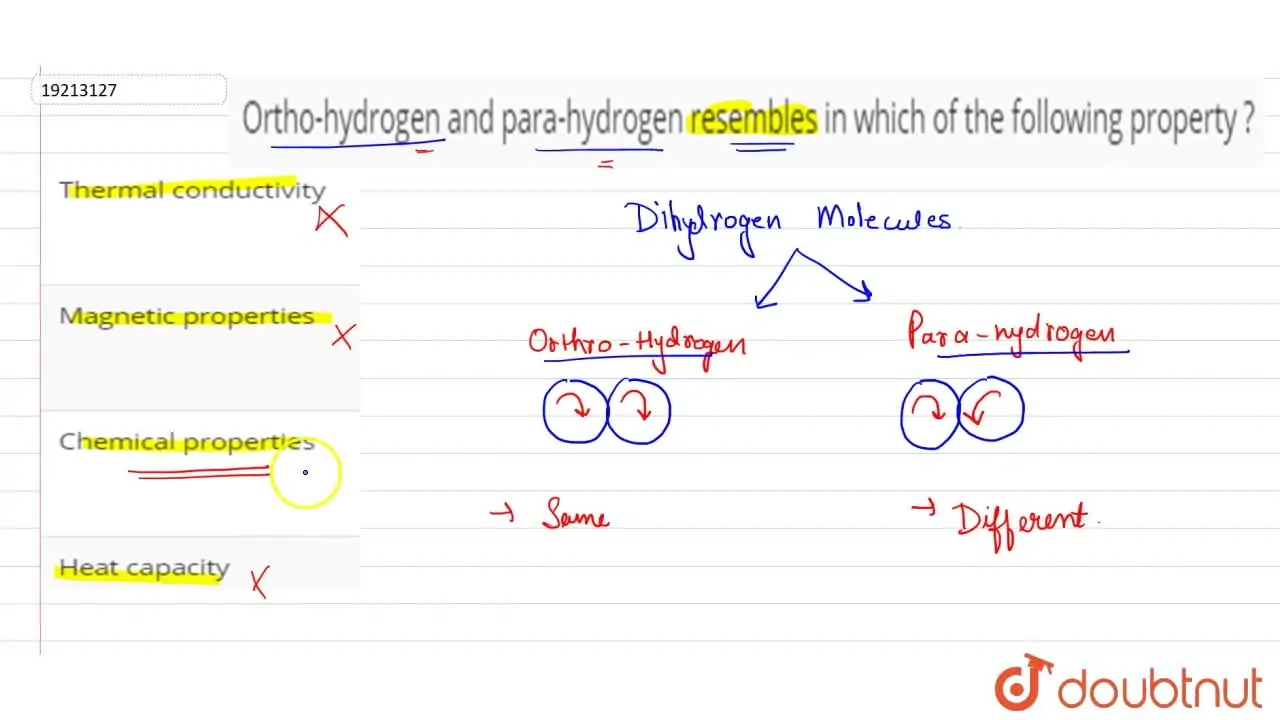 19213127
Ortho-hydrogen and para-hydrogen resembles in which of the following property ?
Thermal conductivity
Dihydrogen Molecules
Magnetic properties
Orthro-Hydrogen
Para-hydrogen
Chemical properties
→ Same
→ Different
Heat capacity
doubtnut